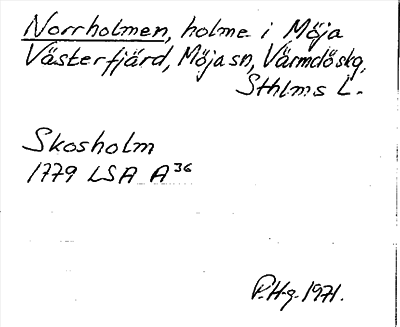 Norrholmen, holme i Möja
Västerfjärd, Möja sn, Värmdö skg,
Sthlms L.
Skosholm
1779 LSA A 36
P.H-g. 1971.